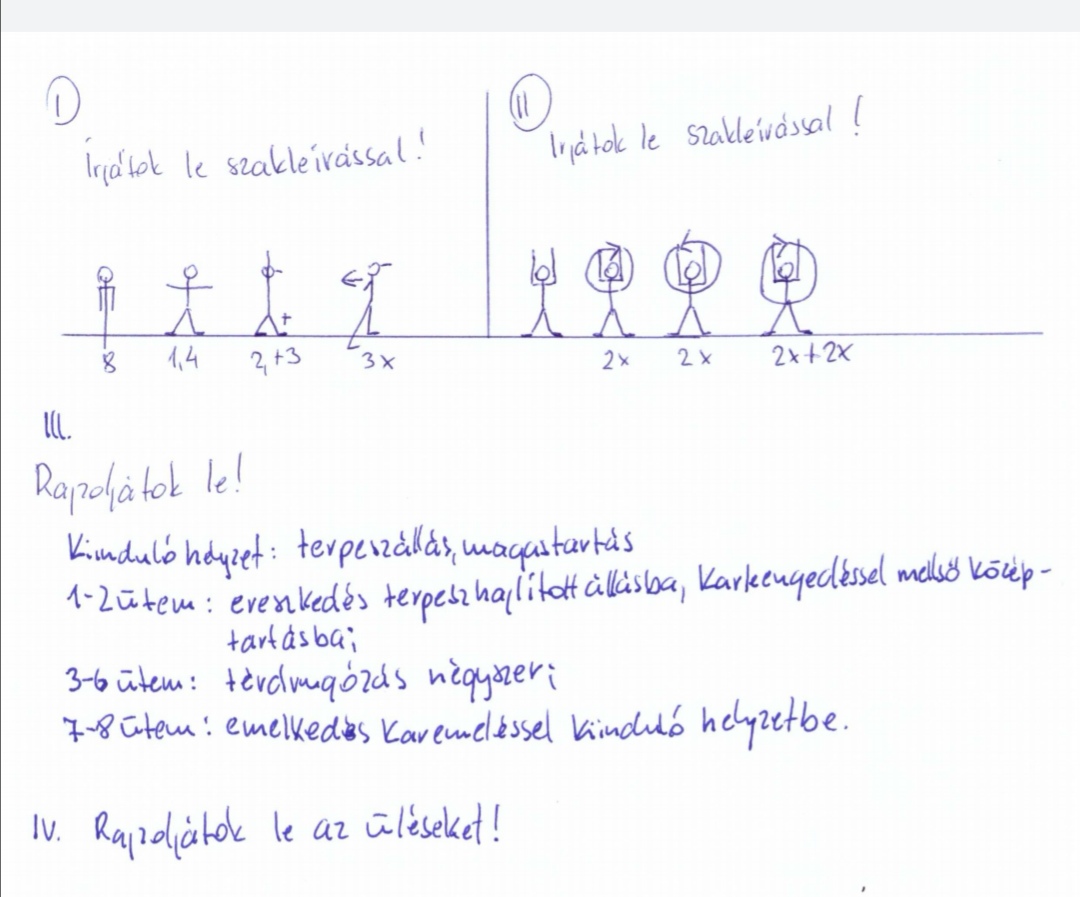 I
Írjátok le szakleírással!
8 1,4 2,+3 3x
II
Irjátok le szakleírással!
2x 2x 2x+2x
III.
Rajzoljátok le!
Kiinduló helyzet: terpeszállás, magastartás
1-2 ütem: ereszkedés terpeszhajlított állásba, karleengedéssel mellső közép-
tartásba;
3-6 ütem: térdrugózás négyszer;
7-8 ütem: emelkedés karemeléssel kiinduló helyzetbe.
IV. Rajzoljátok le az üléseket!